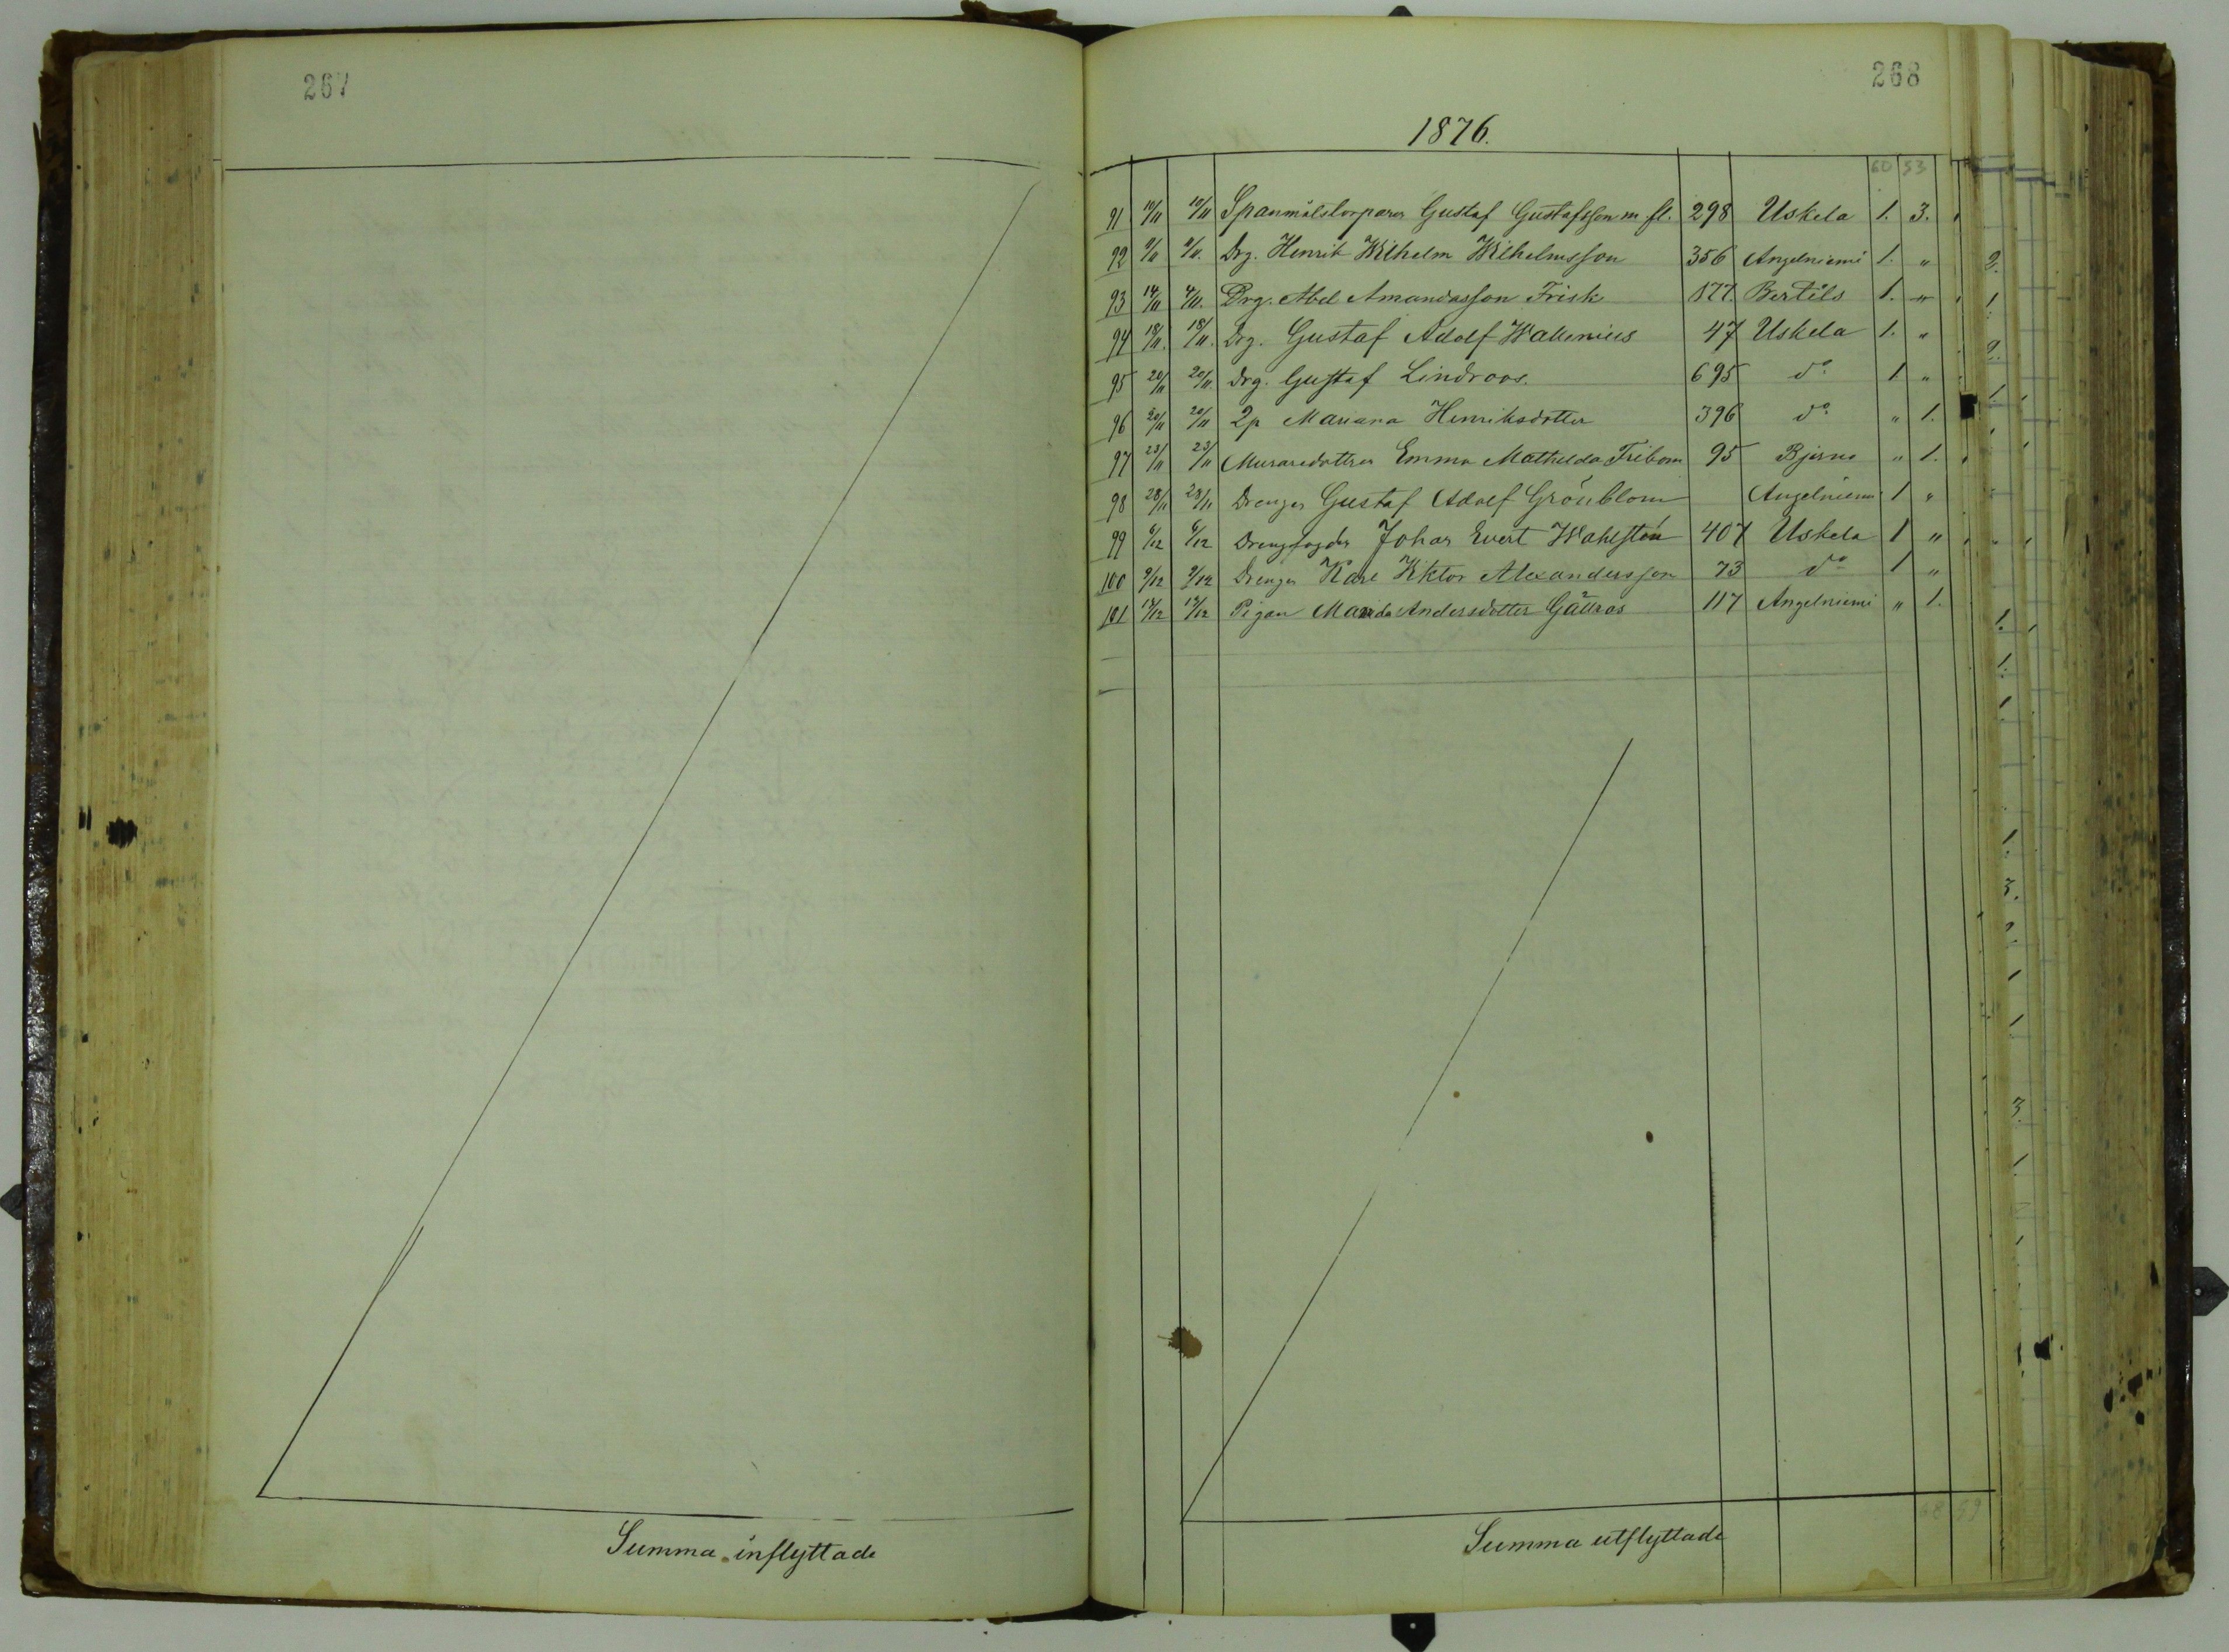 267
Summa inflyttade
268
1876.
60 53
91 10/11 10/11 Spanmålstorparen Gustaf Gustafsson m. fl. 298 Uskela 1. 3.
92 9/11 9/11. Drg. Henrik Wilhelm Wilhelmsson 356 Angelniemi 1. "
93 14/11 4/11. Drg. Abel Amandasson Frisk 177. Bertils 1. "
94 18/11. 18/11. Drg. Gustaf Adolf Wallenius 47 Uskela 1. "
95 20/11 20/11. Drg. Gustaf Lindroos. 695 do 1. "
96 20/11 20/11 2p Mariana Henriksdotter 396 do " 1.
97 23/11 23/11 Muraredottren Emma Mathilda Fribom 95 Bjerno " 1.
98 28/11 28/11 Drengen Gustaf Adolf Grönblom Angelniemi 1 "
99 6/12 6/12 Drengfogden Johan Evert Wahlstén 407 Uskela 1 "
100 9/12 9/12 Drengen Karl Viktor Alexandersson 73 do 1 "
101 /12 /12 Pigan Andersdotter Gällros 117 Angelniemi " 1.
68 59
Summa utflyttade